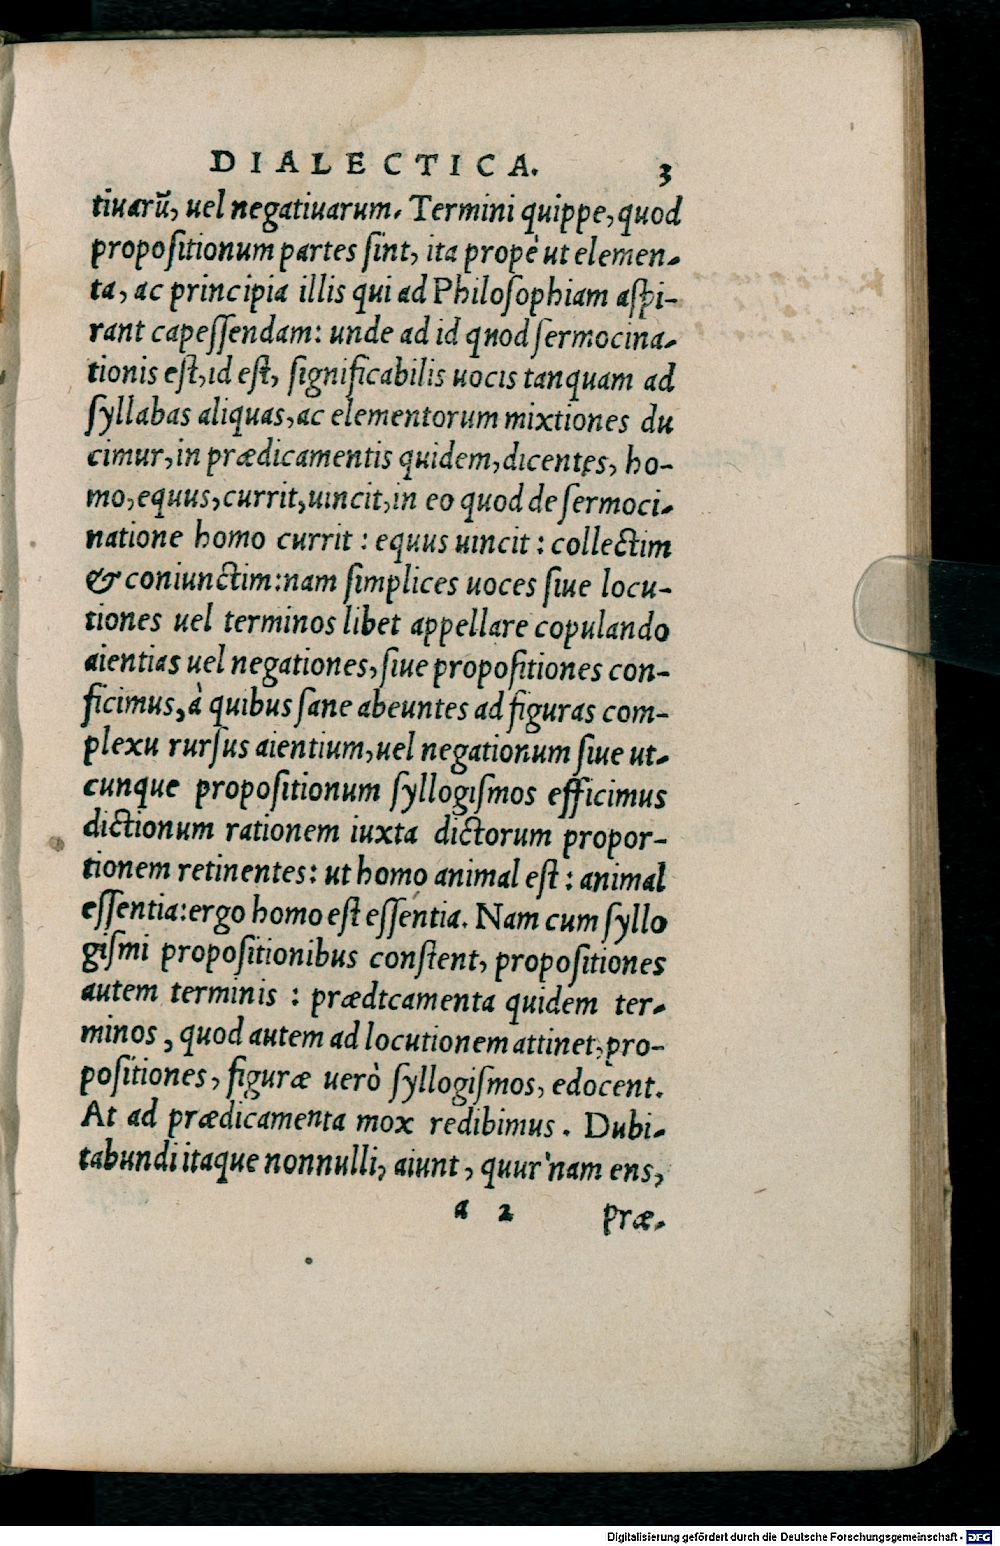 DIALECTICA. 3
tiuarũ, uel negatiuarum. Termini quippe, quod
propoſitionum partes ſint, ita propè ut elemen-
ta, ac principia illis qui ad Philoſophiam aſpi-
rant capeſſendam: unde ad id quod ſermocina-
tionis eſt, id eſt, ſignificabilis uocis tanquam ad
ſyllabas aliquas, ac elementorum mixtiones du
cimur, in prædicamentis quidem, dicentes, ho-
mo, equus, currit, uincit, in eo quod de ſermoci-
natione homo currit : equus uincit : collectim
& coniunctim: nam ſimplices uoces ſiue locu-
tiones uel terminos libet appellare copulando
aientias uel negationes, ſiue propoſitiones con-
ficimus, à quibus ſane abeuntes ad figuras com-
plexu rurſus aientium, uel negationum ſiue ut-
cunque propoſitionum ſyllogiſmos efficimus
dictionum rationem iuxta dictorum propor-
tionem retinentes: ut homo animal eſt : animal
eſſentia: ergo homo eſt eſſentia. Nam cum ſyllo
giſmi propoſitionibus conſtent, propoſitiones
autem terminis : prædtcamenta quidem ter-
minos, quod autem ad locutionem attinet, pro-
poſitiones, figuræ uerò ſyllogiſmos, edocent.
At ad prædicamenta mox redibimus. Dubi-
tabundi itaque nonnulli, aiunt, quur'nam ens,
a 2 præ-
Digitalisierung gefördert durch die Deutsche Forschungsgemeinschaft - DFG